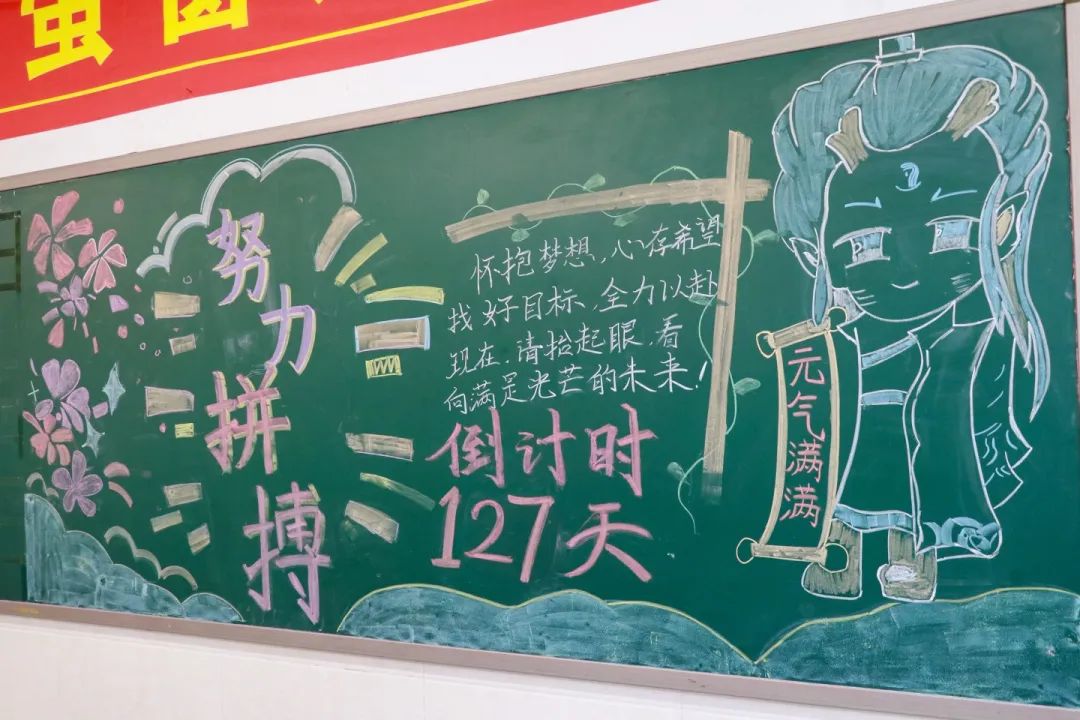 努力拼搏
怀抱梦想、心存希望
找好目标、全力以赴
现在、请抬起眼、看
向满是光芒的未来!
倒计时
127天
元气满满